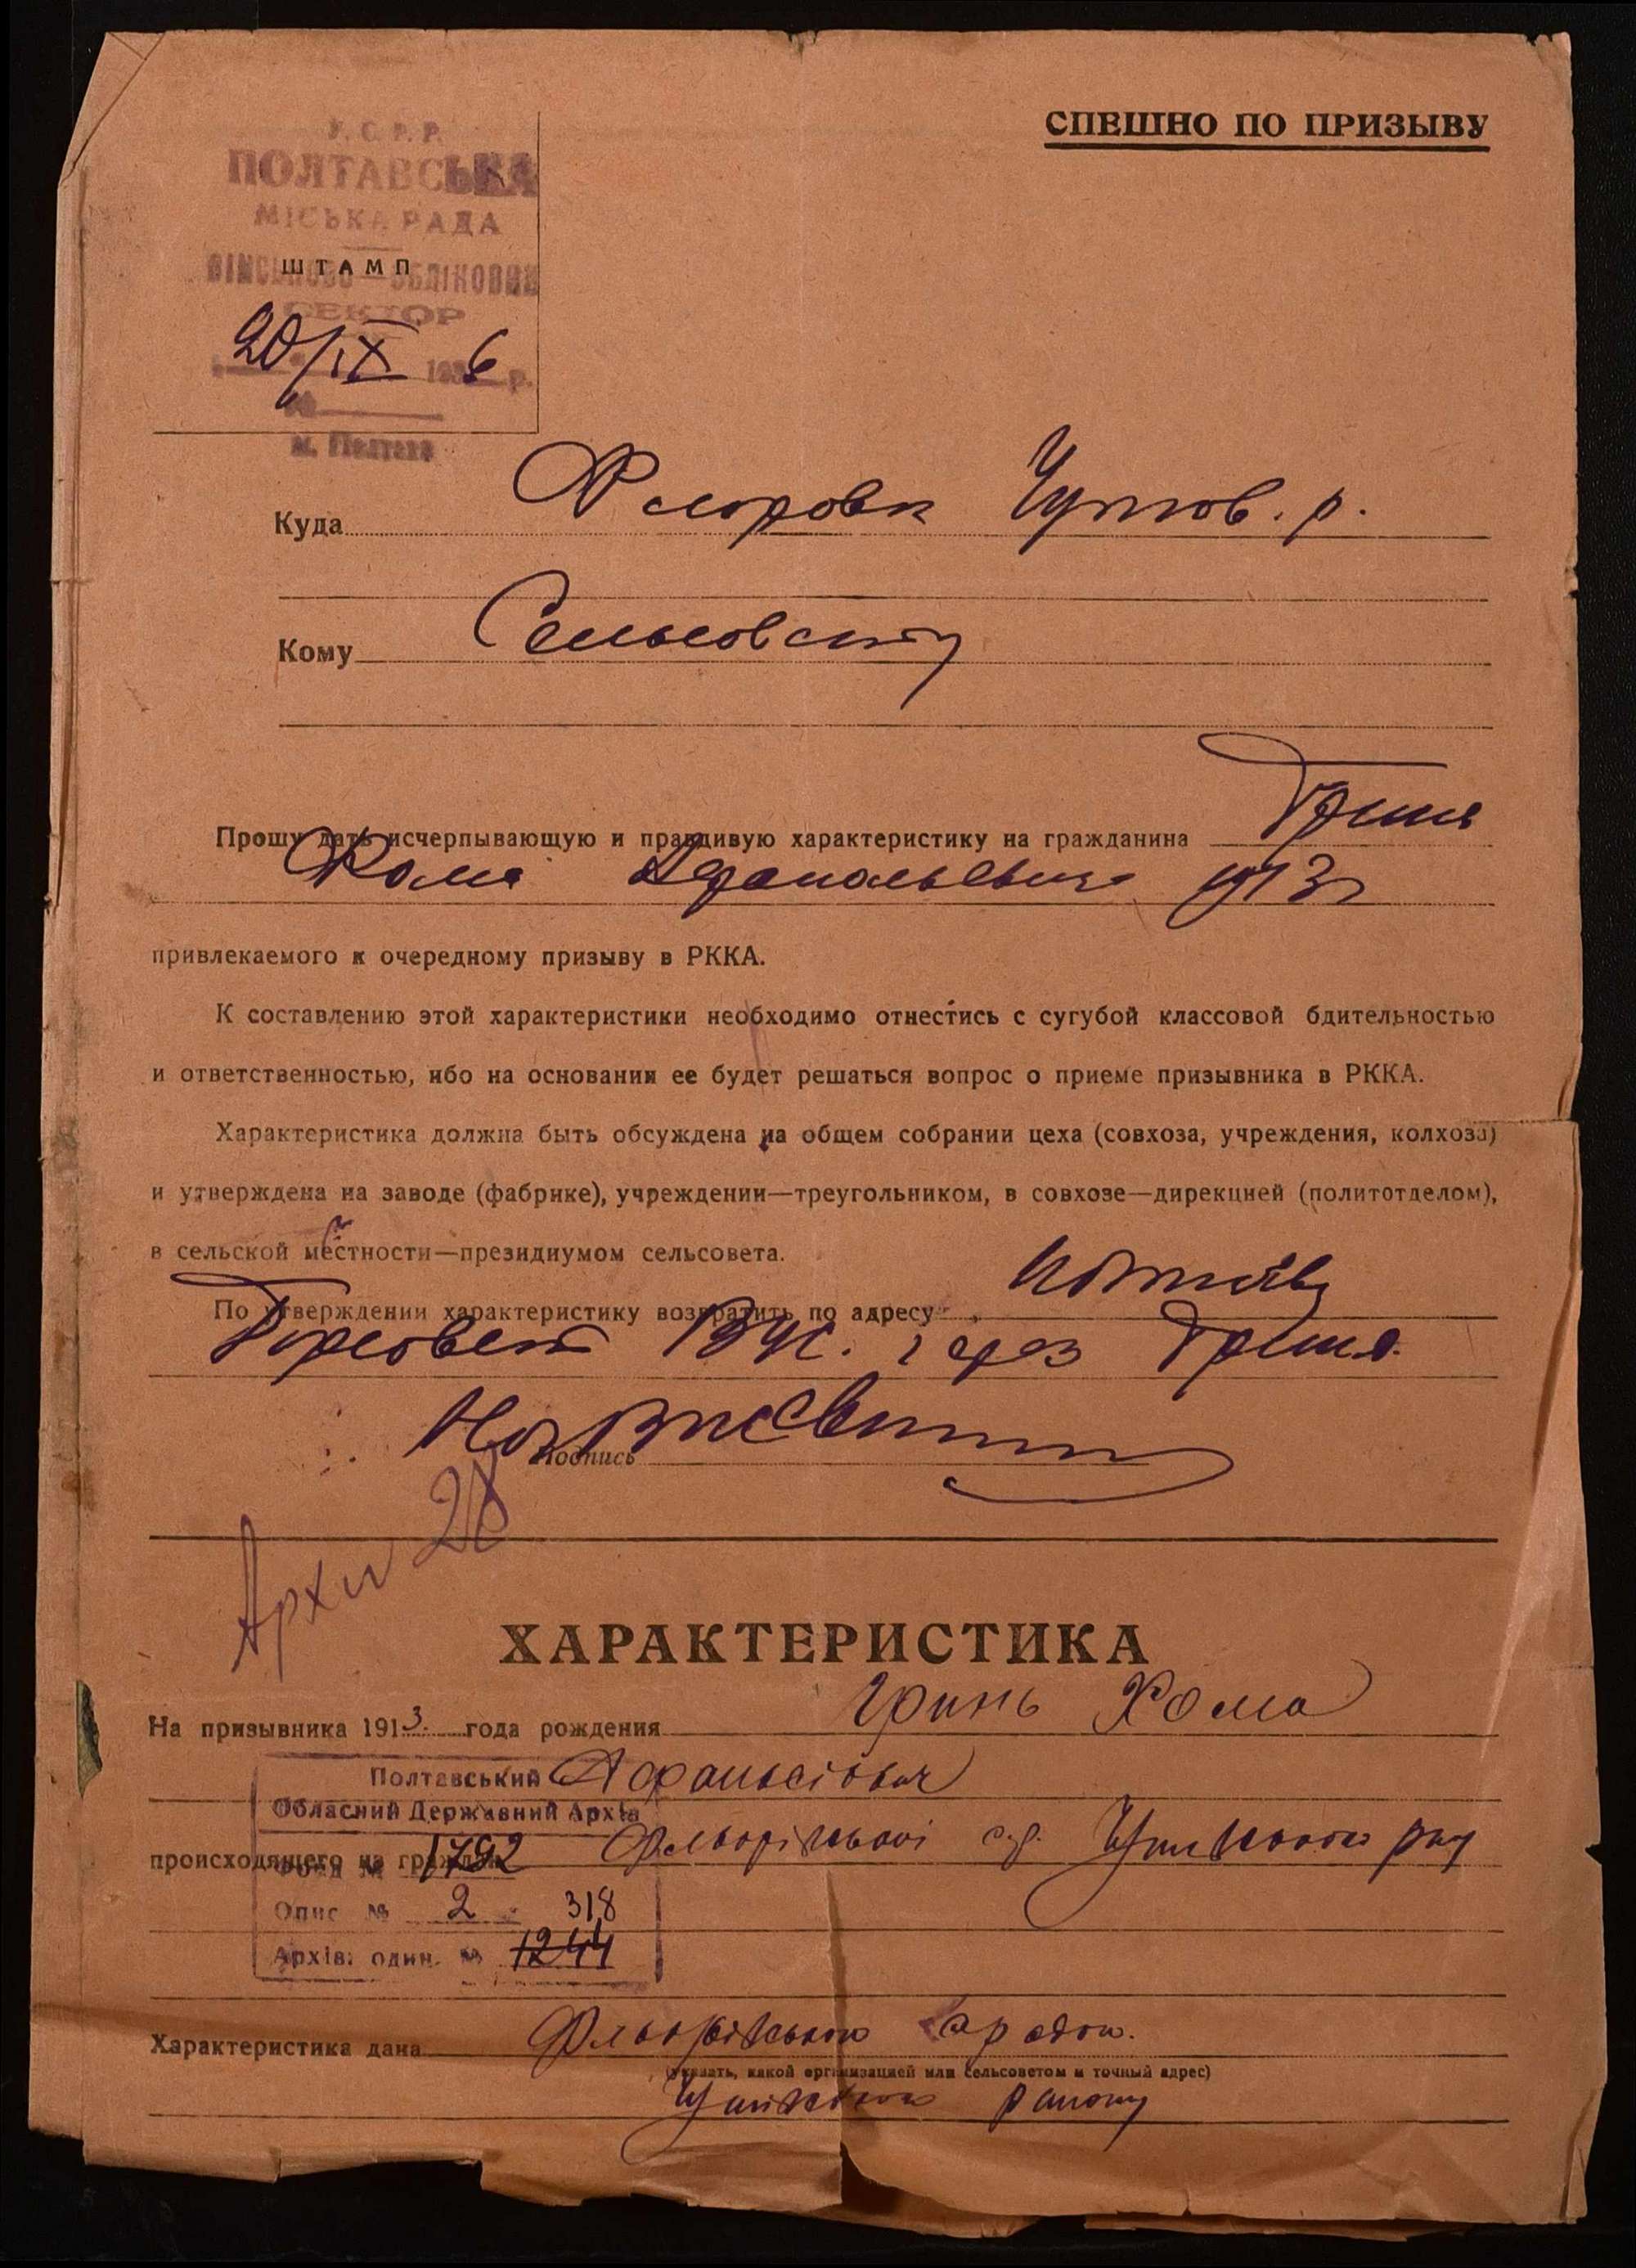 СПЕШНО ПО ПРИЗЫВУ
У.С.Р.Р.
ПОЛТАВСЬКА
МІСЬКА РАДА
ШТАМП
ВІЙСЬКОВО-ОБЛІКОВИЙ
СЕКТОР
20/IX 1936 р.
№
м. Полтава
Куда Флоровка Чутов. р.
Кому Сельсовету
Прошу дать исчерпывающую и правдивую характеристику на гражданина Гриня
Хома 1913 г
привлекаемого к очередному призыву в РККА.
К составлению этой характеристики необходимо отнестись с сугубой классовой бдительностью
и ответственностью, ибо на основании ее будет решаться вопрос о приеме призывника в РККА.
Характеристика должна быть обсуждена на общем собрании цеха (совхоза, учреждения, колхоза)
и утверждена на заводе (фабрике), учреждении—треугольником, в совхозе—дирекцией (политотделом),
в сельской местности—президиумом сельсовета.
По утверждении характеристику возвратить по адресу Полтава
Горсовет ВУС. через Гриня.
Подпись
Архив 28
ХАРАКТЕРИСТИКА
На призывника 1913 года рождения Гринь Хома
Афанасієвич
Полтавський
Обласний Державний Архів
происходящего из граждан
Фонд № 1792
Опис № 2 318
Архів. один. № 1244
Характеристика дана
(указать, какой организацией или сельсоветом и точный адрес)
району